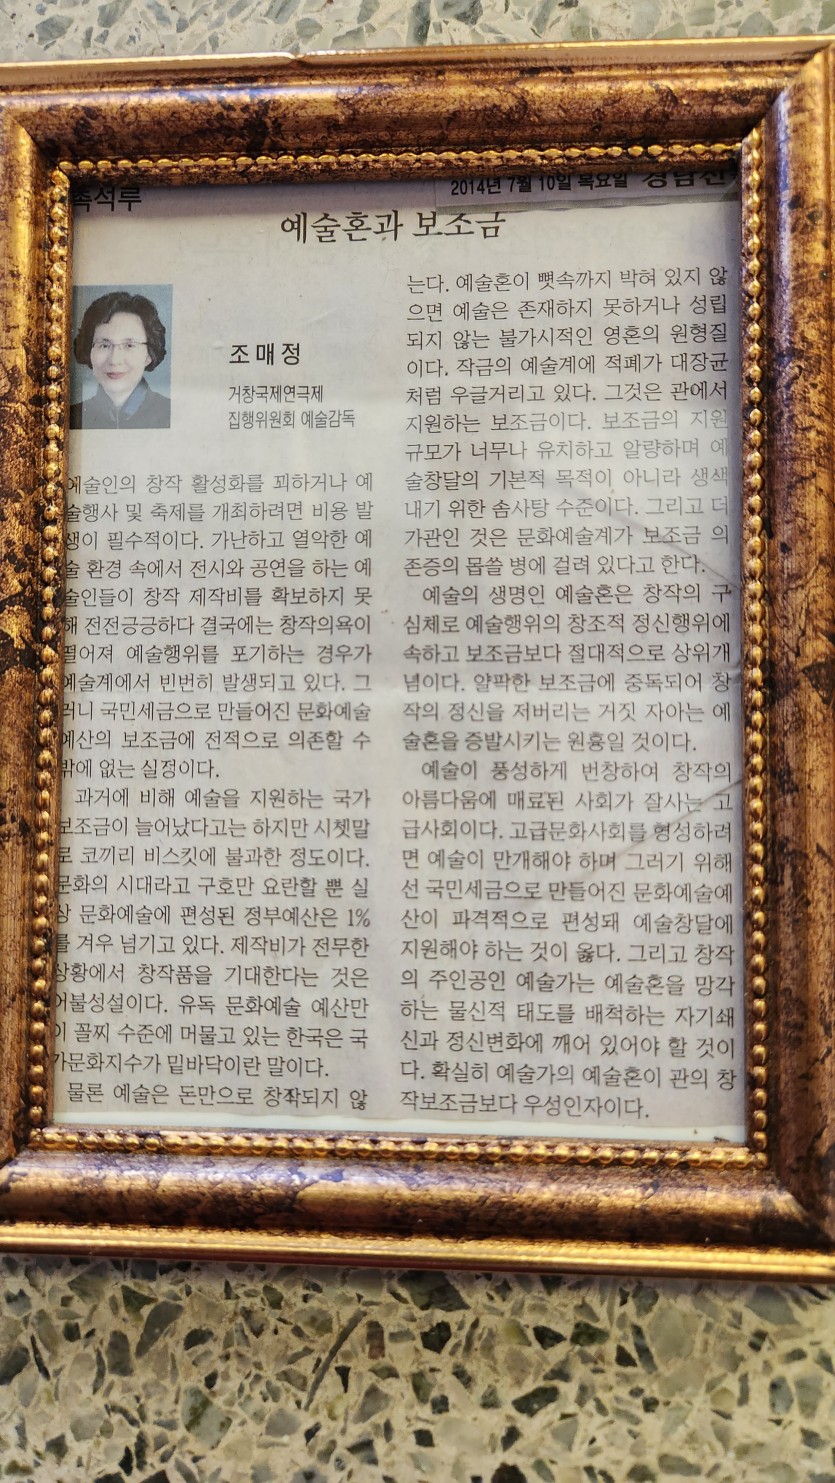 촉석루
2014년 7월 10일 목요일 경남신
예술혼과 보조금
조매정
거창국제연극제
집행위원회 예술감독
예술인의 창작 활성화를 꾀하거나 예
술행사 및 축제를 개최하려면 비용 발
생이 필수적이다. 가난하고 열악한 예
술 환경 속에서 전시와 공연을 하는 예
술인들이 창작 제작비를 확보하지 못
해 전전긍긍하다 결국에는 창작의욕이
떨어져 예술행위를 포기하는 경우가
예술계에서 빈번히 발생되고 있다. 그
러니 국민세금으로 만들어진 문화예술
예산의 보조금에 전적으로 의존할 수
밖에 없는 실정이다.
과거에 비해 예술을 지원하는 국가
보조금이 늘어났다고는 하지만 시쳇말
로 코끼리 비스킷에 불과한 정도이다.
문화의 시대라고 구호만 요란할 뿐 실
상 문화예술에 편성된 정부예산은 1%
를 겨우 넘기고 있다. 제작비가 전무한
상황에서 창작품을 기대한다는 것은
어불성설이다. 유독 문화예술 예산만
이 꼴찌 수준에 머물고 있는 한국은 국
가문화지수가 밑바닥이란 말이다.
물론 예술은 돈만으로 창작되지 않
는다. 예술혼이 뼛속까지 박혀 있지 않
으면 예술은 존재하지 못하거나 성립
되지 않는 불가시적인 영혼의 원형질
이다. 작금의 예술계에 적폐가 대장균
처럼 우글거리고 있다. 그것은 관에서
지원하는 보조금이다. 보조금의 지원
규모가 너무나 유치하고 알량하며 예
술창달의 기본적 목적이 아니라 생색
내기 위한 솜사탕 수준이다. 그리고 더
가관인 것은 문화예술계가 보조금 의
존증의 몹쓸 병에 걸려 있다고 한다.
예술의 생명인 예술혼은 창작의 구
심체로 예술행위의 창조적 정신행위에
속하고 보조금보다 절대적으로 상위개
념이다. 얄팍한 보조금에 중독되어 창
작의 정신을 저버리는 거짓 자아는 예
술혼을 증발시키는 원흉일 것이다.
예술이 풍성하게 번창하여 창작의
아름다움에 매료된 사회가 잘사는 고
급사회이다. 고급문화사회를 형성하려
면 예술이 만개해야 하며 그러기 위해
선 국민세금으로 만들어진 문화예술예
산이 파격적으로 편성돼 예술창달에
지원해야 하는 것이 옳다. 그리고 창작
의 주인공인 예술가는 예술혼을 망각
하는 물신적 태도를 배척하는 자기쇄
신과 정신변화에 깨어 있어야 할 것이
다. 확실히 예술가의 예술혼이 관의 창
작보조금보다 우성인자이다.